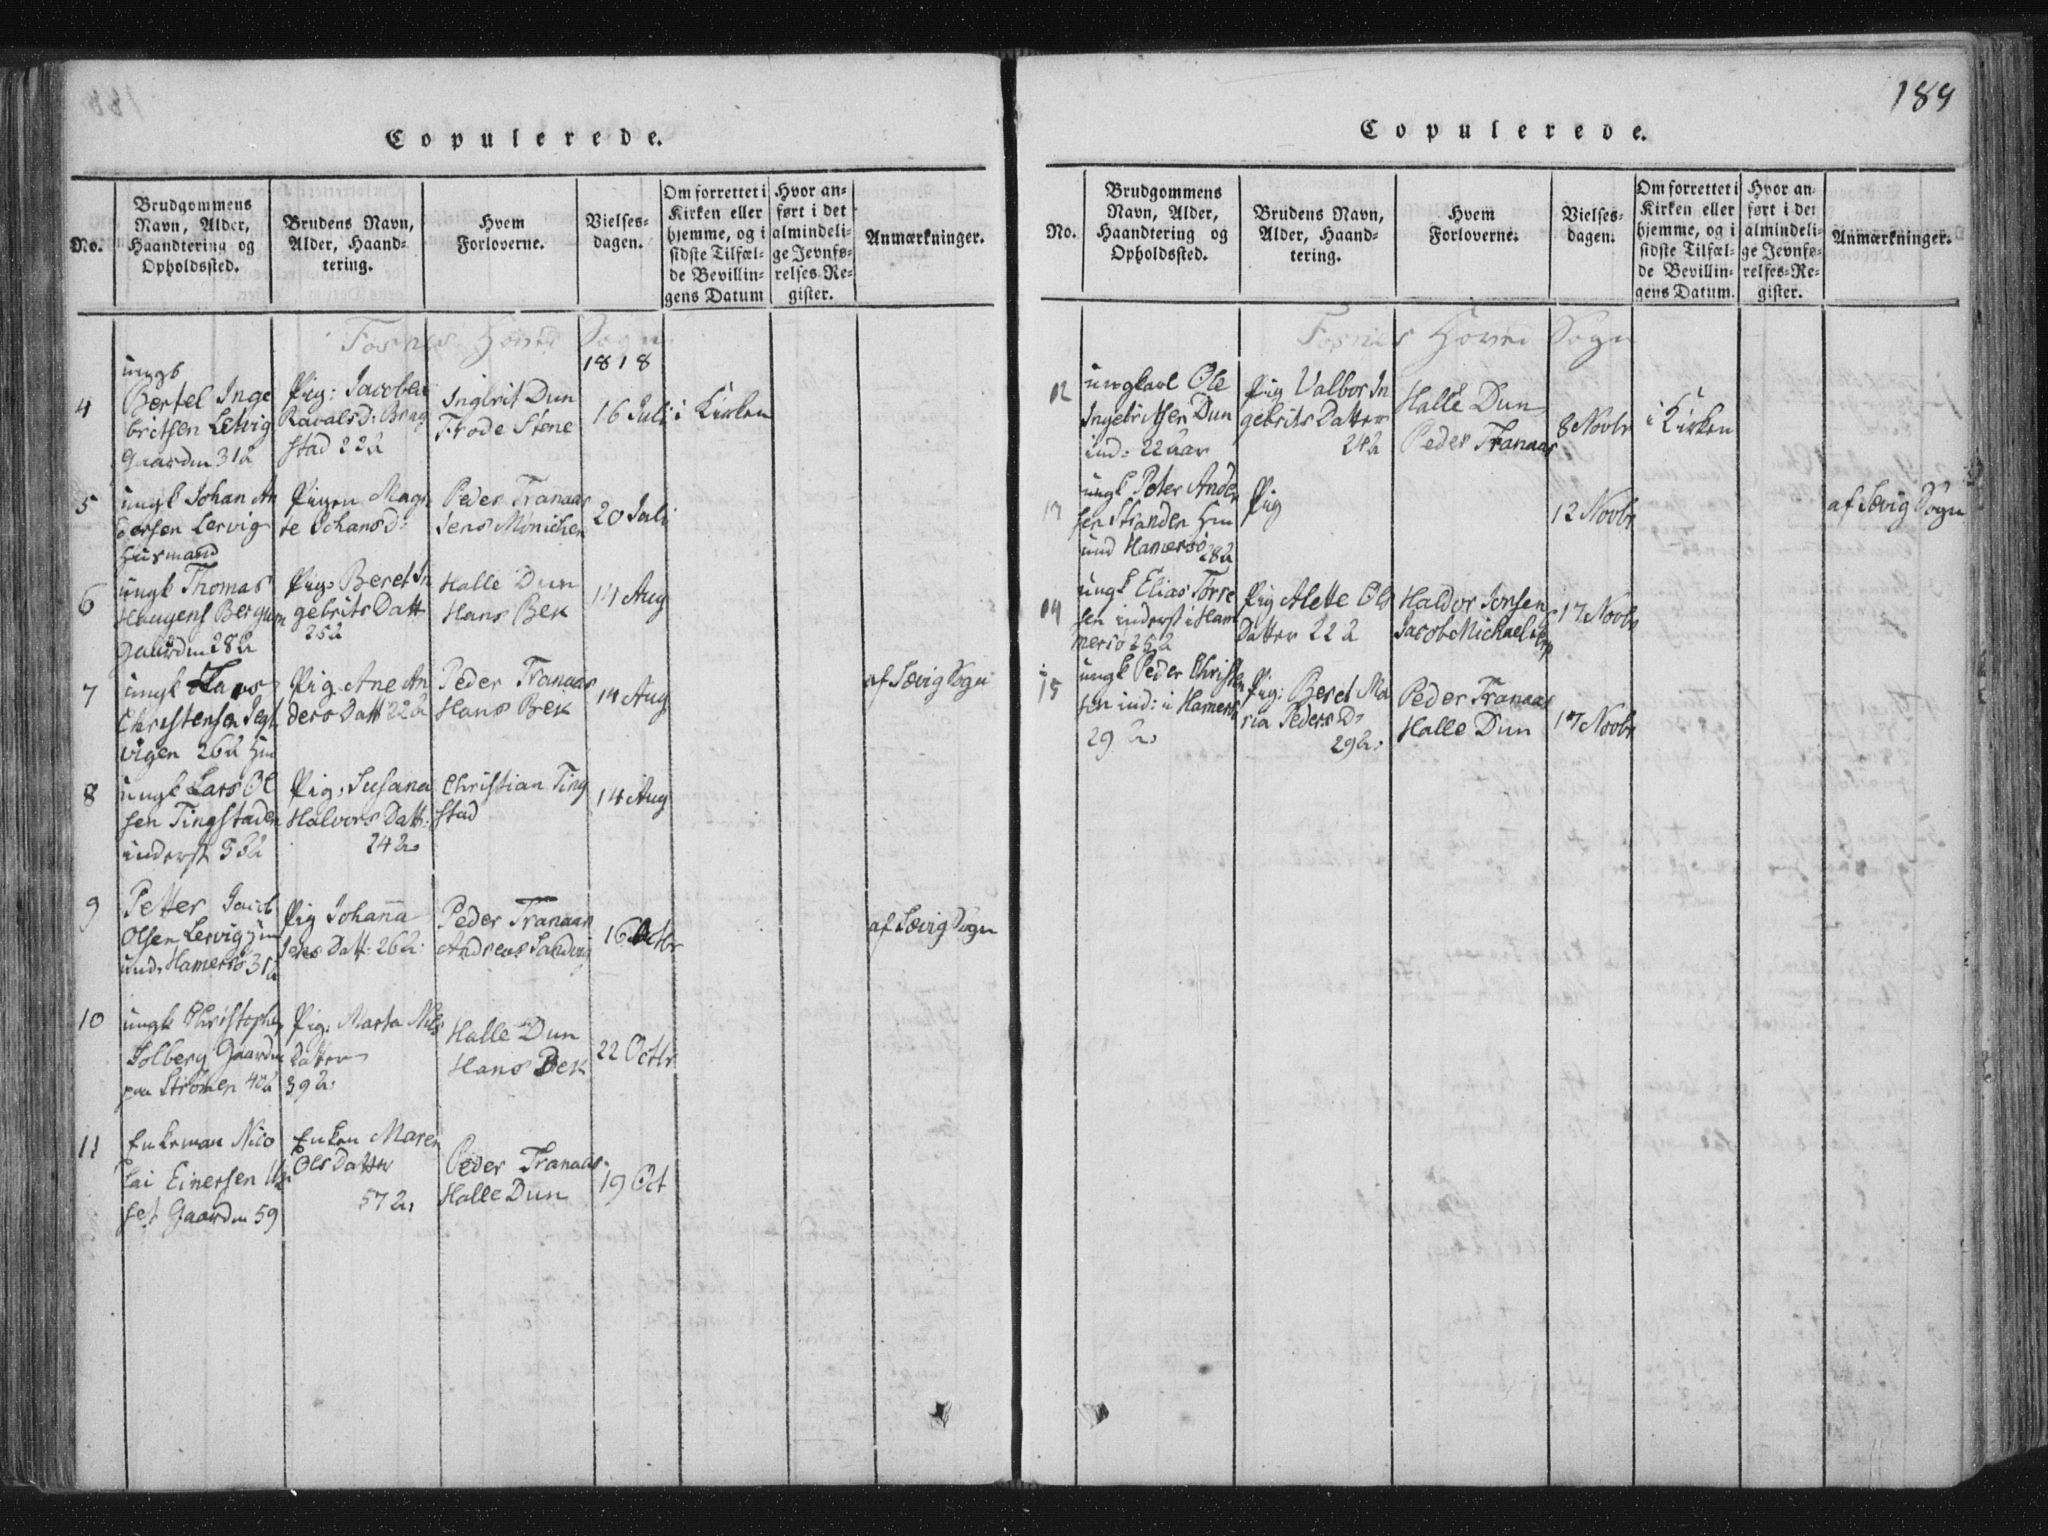 189
Copulerede.
No.
Brudgommens Navn, Alder, Haandtering og Opholdssted.
Brudens Navn, Alder, Haandtering.
Hvem Forloverne.
Vielsesdagen.
Om forrettet i Kirken eller hjemme, og i sidste Tilfælde Bevillingens Datum
Hvor anført i det almindelige Jevnførelses-Register.
Anmærkninger.
Fosnes Hoved Sogn
1818
4
ungk
Bertel Inge
britsen Letvig
Gaardm 31 a
Pig: Jacobea
Ravalsd: Brag
stad 22 a
Ingbrit Dun
Frode Stene
16 Juli
i Kirken
5
ungk Johan An
dersen Lervig
Husmand
Pigen Magr
te Johansd:
Peder Tranaas
Jens Mönichen
20 Juli
6
ungk Thomas
Haugens Bergum
Gaardm 28 a
Pig: Beret In
gebrits Datt
25 a
Halle Dun
Hans Bek
14 Aug
7
ungk Hans
Christensen
vigen 26 a Hm
Pig Ane An
ders Datt 22 a
Peder Tranaas
Hans Bek
14 Aug
af Sævig Sogn
8
ungk Lars Ol
sen Tingstaden
inderst 33 a
Pig: Susana
Halvors Datt:
24 a
Christian Ting
stad
14 Aug
9
Petter Jacob
Olsen Lervig Hm
und: Hamersö 31 a
Pig Johanna
Jens Datt: 26 a:
Peder Tranaas
Andreas Sandvig
16 Octbr
af Sævig Sogn
10
ungk Christopher
Solberg Gaardm
paa Strömen 40 a
Pig: Marta Nils
Datter
39 a:
Halle Dun
Hans Bek
22 Octbr
11
Enkeman Nico
lai Einersen
set Gaardm 59
Enken Maren
Ols Datter
57 a:
Peder Tranaas
Halle Dun
19 Oct
Copulerede.
No.
Brudgommens Navn, Alder, Haandtering og Opholdssted.
Brudens Navn, Alder, Haandtering.
Hvem Forloverne.
Vielsesdagen.
Om forrettet i Kirken eller hjemme, og i sidste Tilfælde Bevillingens Datum.
Hvor anført i det almindelige Jevnførelses-Register.
Anmærkninger.
Fosnes Hoved Sogn
12
ungkarl Ole
Ingebritsen Dun
ind: 22 aar
Pig Valbor In
gebrits Datter
24 a
Halle Dun
Peder Tranaas
8 Novbr
i Kirken
13
ungk Peter Ander
sen Stranden Hm
und Hamersö 28 a
Pig
12 Novbr
af Sævig Sogn
14
ungk Elias Torre
sen inderst i Ham
mersö 25 a
Pig Alette Ols
Datter 22 a
Haldor Jonsen
Jacob Michaelsen
17 Novbr
15
ungk Peder Christen
sen ind: i Hamersö
29 a:
Pig: Beret Ma
ria Peders D:
29 a:
Peder Tranaas
Halle Dun
17 Novbr